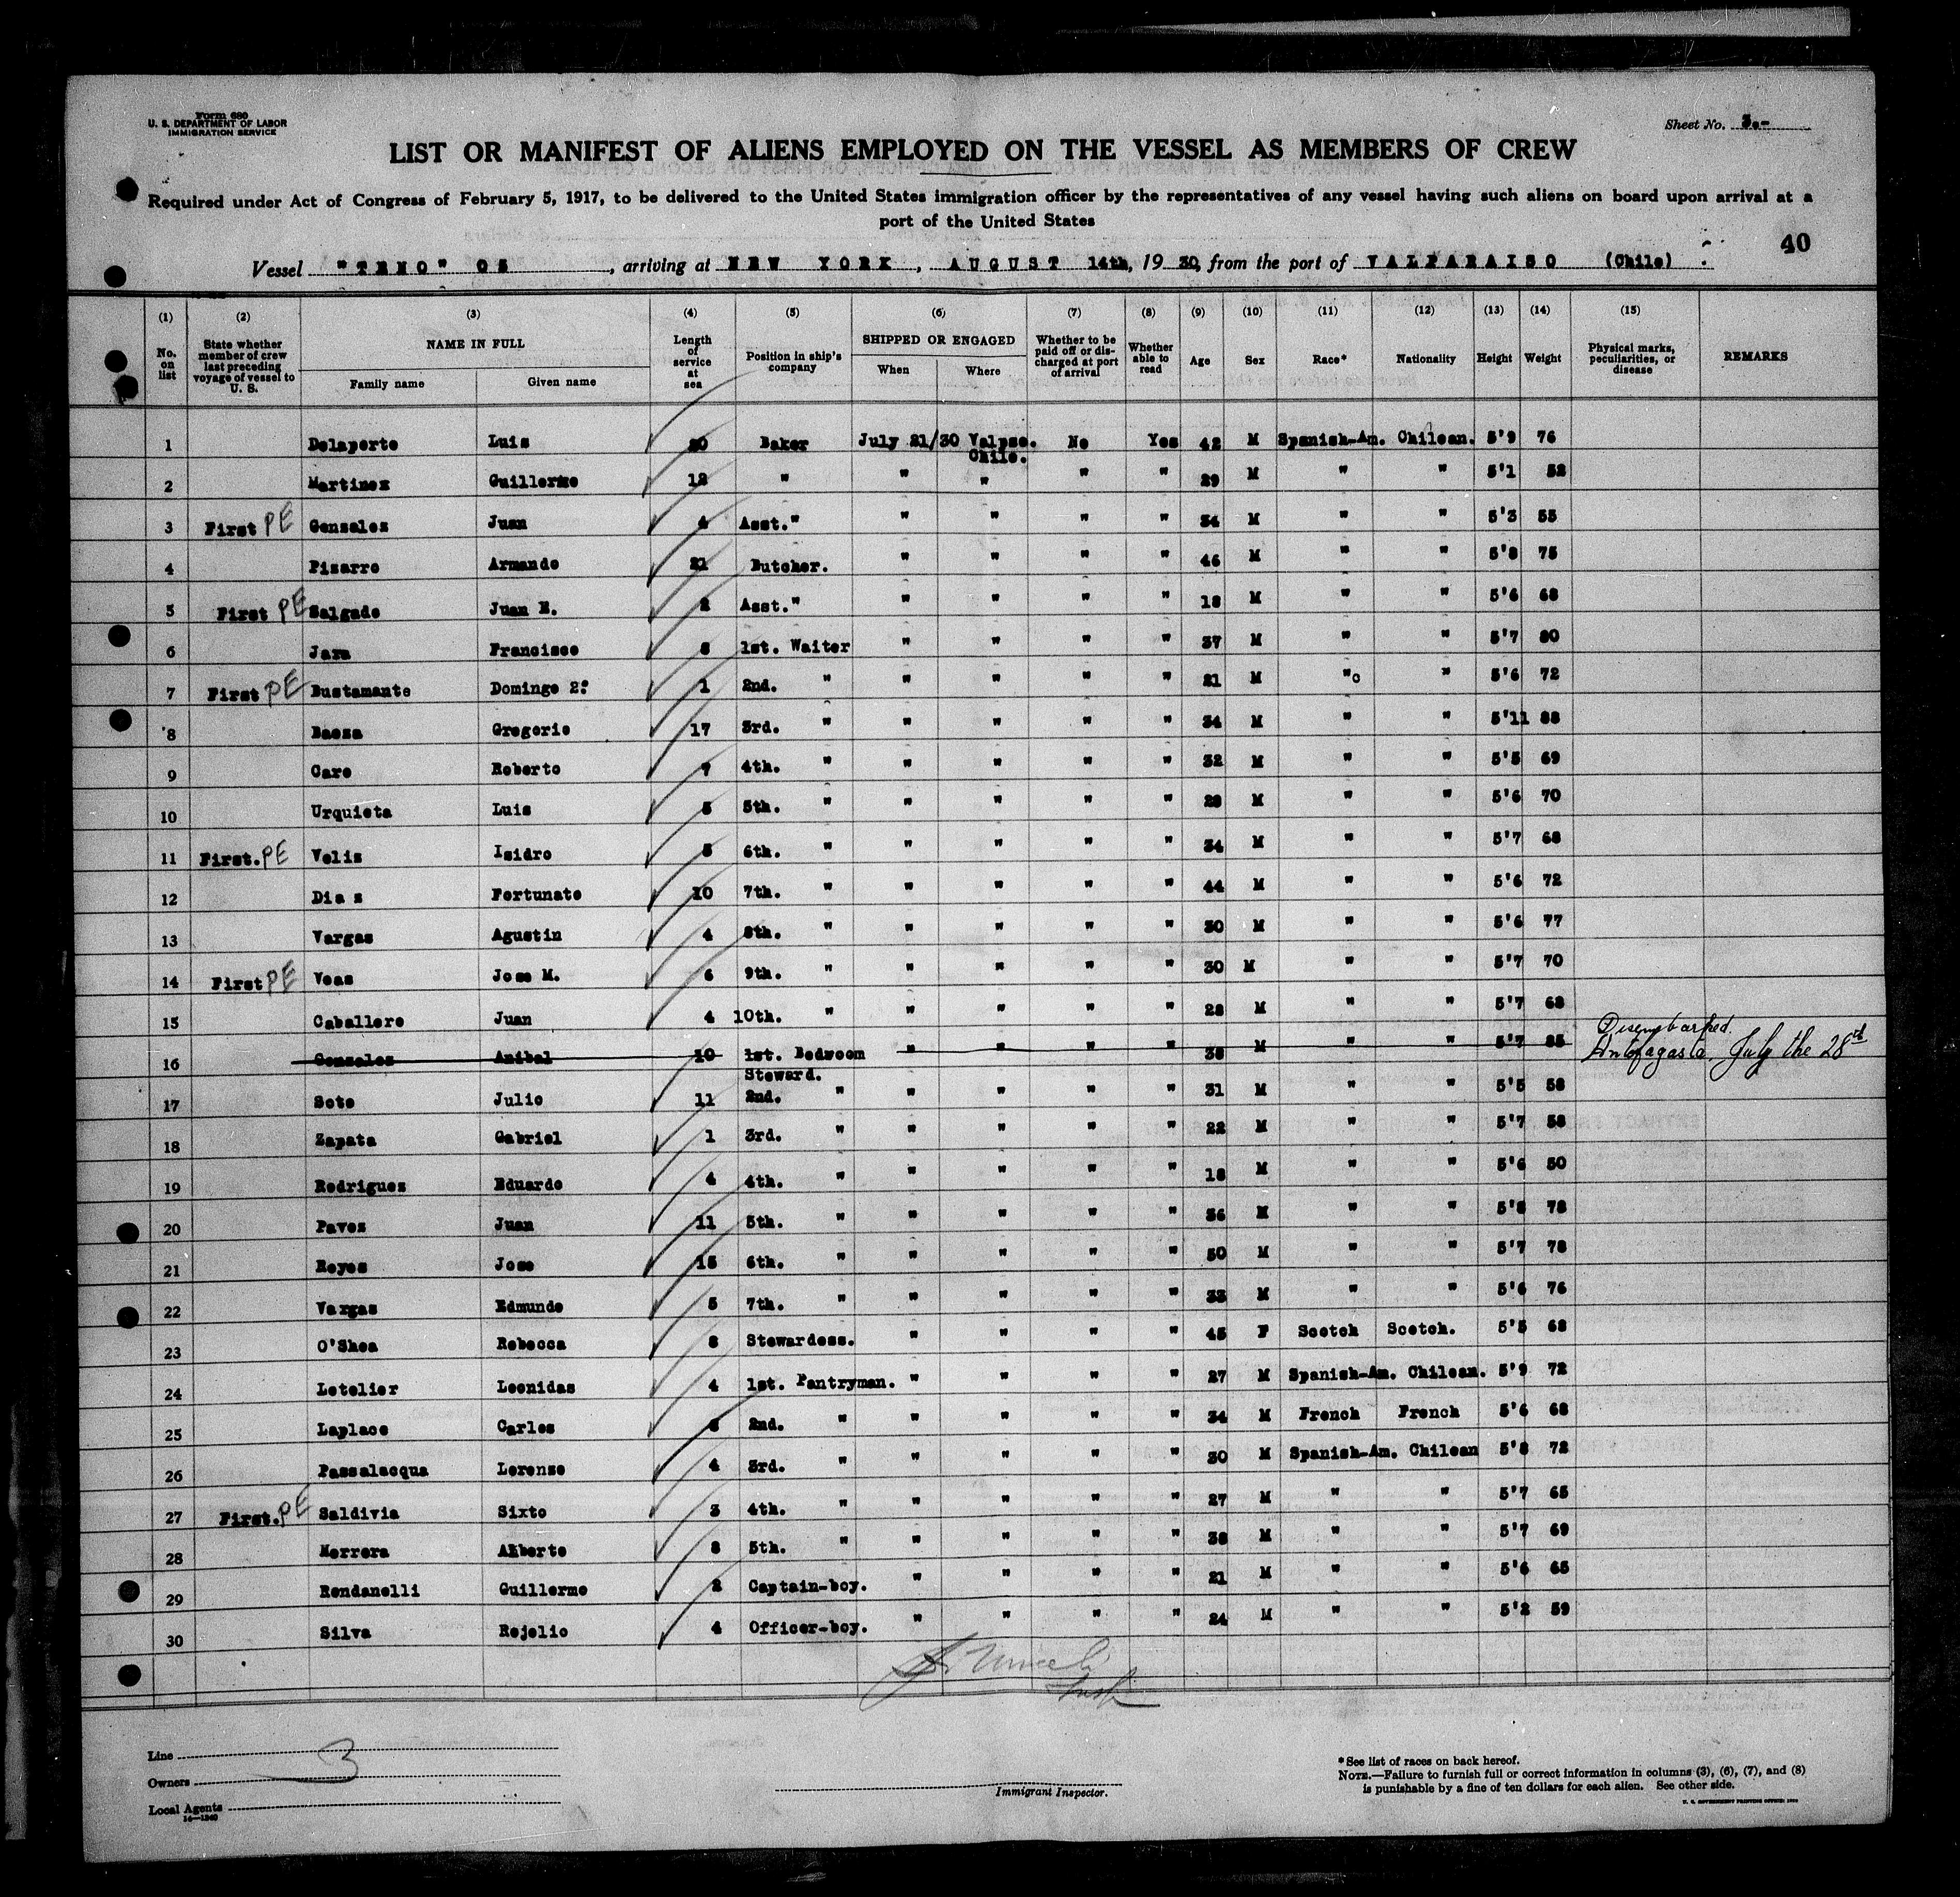 Form 680
U. S. DEPARTMENT OF LABOR
IMMIGRATION SERVICE
Sheet No. 3.-
LIST OR MANIFEST OF ALIENS EMPLOYED ON THE VESSEL AS MEMBERS OF CREW
Required under Act of Congress of February 5, 1917, to be delivered to the United States immigration officer by the representatives of any vessel having such aliens on board upon arrival at a
port of the United States
40
Vessel "TENO" 05, arriving at NEW YORK, AUGUST 14th, 1930, from the port of VALPARAISO (Chile)
(1) (2) (3) (4) (5) (6) (7) (8) (9) (10) (11) (12) (13) (14) (15)
No. on list State whether member of crew last preceding voyage of vessel to U. S. NAME IN FULL Length of service at sea Position in ship's company SHIPPED OR ENGAGED Whether to be paid off or discharged at port of arrival Whether able to read Age Sex Race* Nationality Height Weight Physical marks, peculiarities, or disease REMARKS
Family name Given name When Where
1 Delaporte Luis 20 Baker July 21/30 Valpso. Chile. No Yes 42 M Spanish-Am. Chilean. 5'9 76
2 Martinez Guillermo 12 " " " " " 29 M " " 5'1 52
3 First PE Gonzalez Juan 4 Asst." " " " " 34 M " " 5'3 55
4 Pizarro Armando 21 Butcher. " " " " 46 M " " 5'8 75
5 First PE Salgado Juan E. 2 Asst." " " " " 18 M " " 5'6 68
6 Jara Francisco 8 1st. Waiter " " " " 37 M " " 5'7 80
7 First PE Bustamante Domingo 2° 1 2nd. " " " " " 21 M " " 5'6 72
8 Baeza Gregorio 17 3rd. " " " " " 34 M " " 5'11 88
9 Caro Roberto 7 4th. " " " " " 32 M " " 5'5 69
10 Urquieta Luis 5 5th. " " " " " 28 M " " 5'6 70
11 First. PE Veliz Isidro 5 6th. " " " " " 34 M " " 5'7 68
12 Diaz Fortunato 10 7th. " " " " " 44 M " " 5'6 72
13 Vargas Agustin 4 8th. " " " " " 30 M " " 5'6 77
14 First PE Veas Jose M. 6 9th. " " " " " 30 M " " 5'7 70
15 Caballero Juan 4 10th. " " " " " 28 M " " 5'7 68
16 Gonzalez Anibal 10 1st. Bedroom Steward. " " " " 38 M " " 5'7 85 Disembarked. Antofagasta. July the 28th
17 Soto Julio 11 2nd. " " " " " 31 M " " 5'5 58
18 Zapata Gabriel 1 3rd. " " " " " 22 M " " 5'7 58
19 Rodriguez Eduardo 4 4th. " " " " " 18 M " " 5'6 50
20 Pavez Juan 11 5th. " " " " " 36 M " " 5'8 78
21 Reyes Jose 15 6th. " " " " " 50 M " " 5'7 78
22 Vargas Edmundo 5 7th. " " " " " 33 M " " 5'6 76
23 O'Shea Rebecca 8 Stewardess. " " " " 45 F Scotch Scotch. 5'5 68
24 Letelier Leonidas 4 1st. Pantryman. " " " " 27 M Spanish-Am. Chilean. 5'9 72
25 Laplace Carlos 2nd. " " " " " 34 M French French 5'6 68
26 Passalacqua Lorenzo 4 3rd. " " " " " 30 M Spanish-Am. Chilean 5'8 72
27 First. PE Saldivia Sixto 3 4th. " " " " " 27 M " " 5'7 65
28 Herrera Alberto 8 5th. " " " " " 38 M " " 5'7 69
29 Rondanelli Guillermo 2 Captain-boy. " " " " 21 M " " 5'6 65
30 Silva Rojelio 4 Officer-boy. " " " " 24 M " " 5'2 59
Line
Owners 3
Local Agents
14-1240
Immigrant Inspector.
*See list of races on back hereof.
NOTE.—Failure to furnish full or correct information in columns (3), (6), (7), and (8)
is punishable by a fine of ten dollars for each alien. See other side.